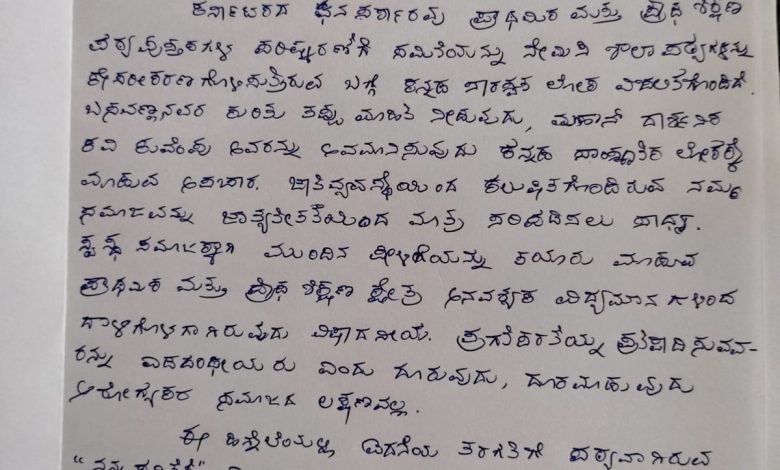 ಕರ್ನಾಟಕದ ಘನ ಸರ್ಕಾರವು ಪ್ರಾಥಮಿಕ ಮತ್ತು ಪ್ರೌಢ ಶಿಕ್ಷಣ
ಪಠ್ಯಪುಸ್ತಕಗಳ ಪರಿಷ್ಕರಣೆಗೆ ಸಮಿತಿಯನ್ನು ನೇಮಿಸಿ ಶಾಲಾ ಪಠ್ಯಗಳನ್ನು
ಕೇಸರೀಕರಣಗೊಳಿಸುತ್ತಿರುವ ಬಗ್ಗೆ ಕನ್ನಡ ಸಾರಸ್ವತ ಲೋಕ ವಿಚಲಿತಗೊಂಡಿದೆ.
ಬಸವಣ್ಣನವರ ಕುರಿತು ತಪ್ಪು ಮಾಹಿತಿ ನೀಡುವುದು, ಮಹಾನ್ ದಾರ್ಶನಿಕ
ಕವಿ ಕುವೆಂಪು ಅವರನ್ನು ಅವಮಾನಿಸುವುದು ಕನ್ನಡ ಸಾಂಸ್ಕೃತಿಕ ಲೋಕಕ್ಕೆ
ಮಾಡುವ ಅಪಚಾರ. ಜಾತಿವ್ಯವಸ್ಥೆಯಿಂದ ಕಲುಷಿತಗೊಂಡಿರುವ ನಮ್ಮ
ಸಮಾಜವನ್ನು ಜಾತ್ಯತೀತತೆಯಿಂದ ಮಾತ್ರ ಸರಿಪಡಿಸಲು ಸಾಧ್ಯ.
ಸ್ವಸ್ಥ ಸಮಾಜಕ್ಕಾಗಿ ಮುಂದಿನ ಪೀಳಿಗೆಯನ್ನು ತಯಾರು ಮಾಡುವ
ಪ್ರಾಥಮಿಕ ಮತ್ತು ಪ್ರೌಢ ಶಿಕ್ಷಣ ಕ್ಷೇತ್ರ ಅನವಶ್ಯಕ ವಿದ್ಯಮಾನಗಳಿಂದ
ದಾಳಿಗೊಳಗಾಗಿರುವುದು ವಿಷಾದನೀಯ. ಪ್ರಗತಿಪರತೆಯನ್ನು ಪ್ರತಿಪಾದಿಸುವವ-
ರನ್ನು ಎಡಪಂಥೀಯರು ಎಂದು ದೂರುವುದು, ದೂರಮಾಡುವುದು
ಆರೋಗ್ಯಕರ ಸಮಾಜದ ಲಕ್ಷಣವಲ್ಲ.
ಈ ಹಿನ್ನೆಲೆಯಲ್ಲಿ ಐದನೆಯ ತರಗತಿಗೆ ಪಠ್ಯವಾಗಿರುವ